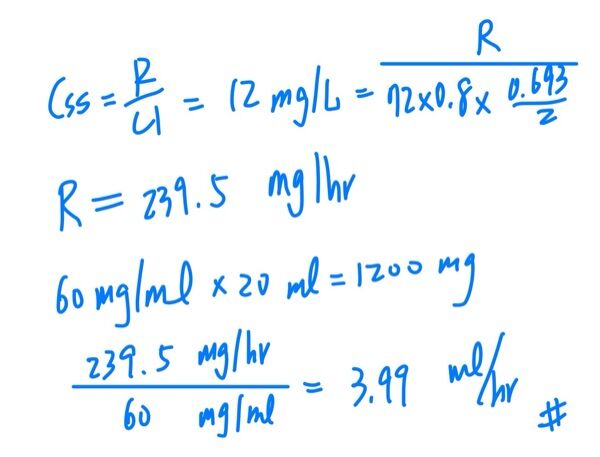 Css = R/Cl = 12 mg/L = R/(72×0.8×0.693/2)
R = 239.5 mg/hr
60 mg/ml × 20 ml = 1200 mg
239.5 mg/hr / 60 mg/ml = 3.99 ml/hr #